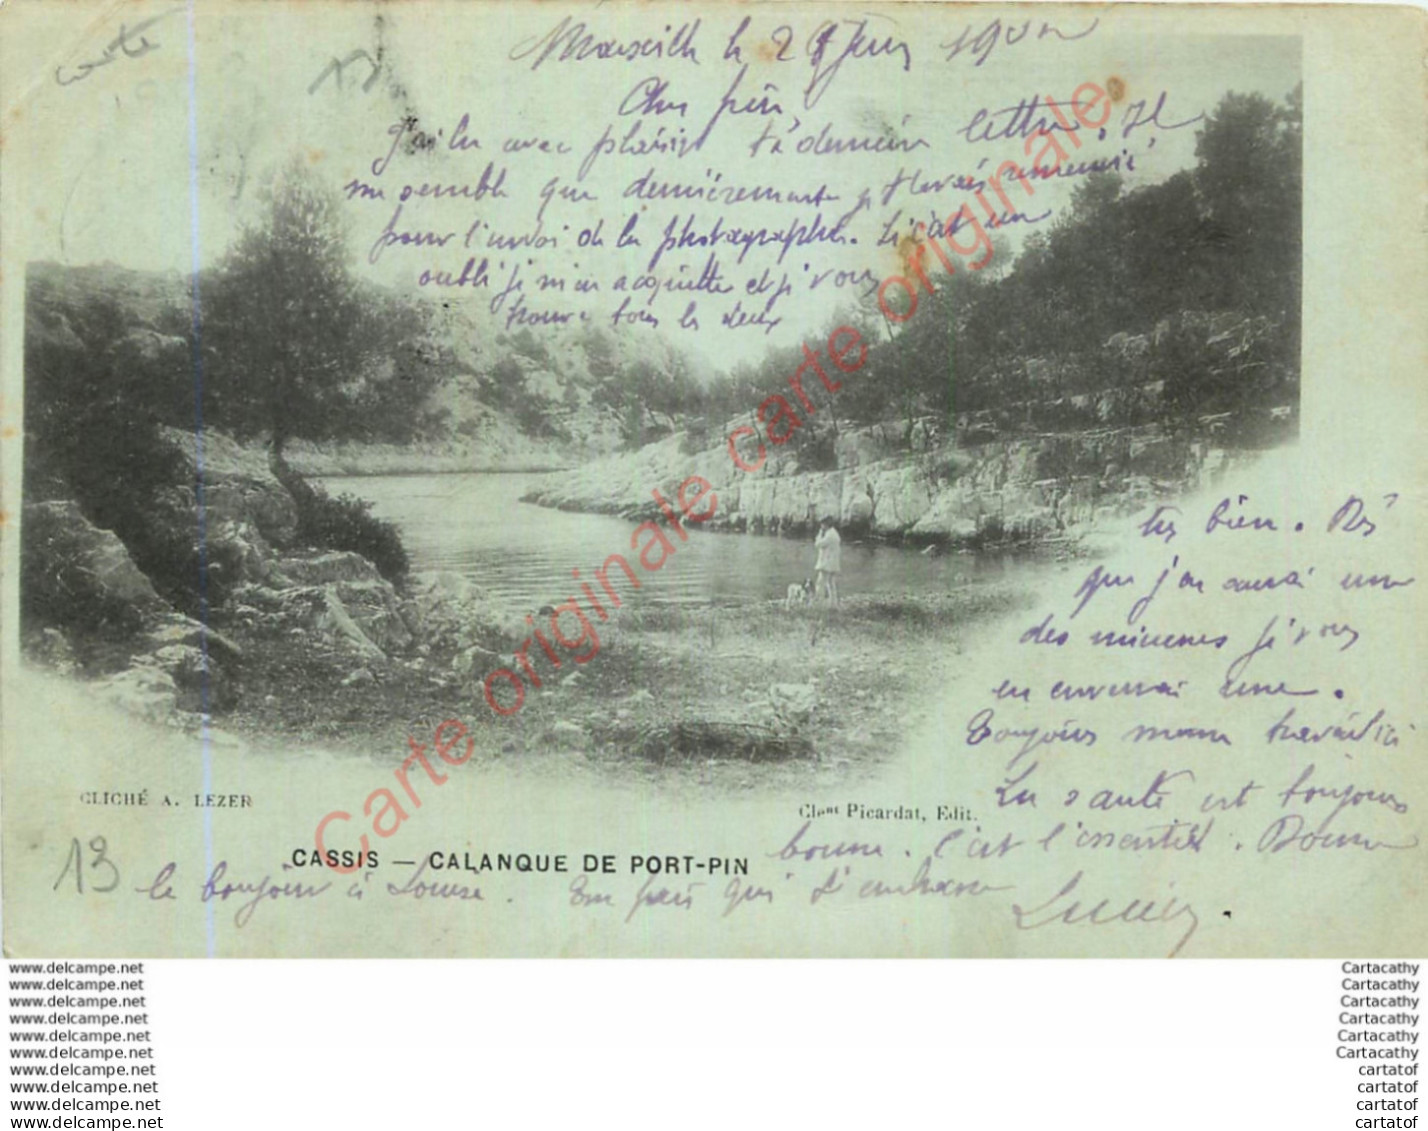 carte
13
Marseille le 2 Juin 1900
Cher père,
J'ai lu avec plaisir ta dernière lettre. Il
me semble que dernièrement je t'avais remercié
pour l'envoi de la photographie. Si c'est un
oubli je m'en acquitte et je vous
trouve tous les deux
très bien. Dès
que j'en aurai une
des miennes je vous
en enverrai une.
Toujours même travail ici
La santé est toujours
bonne. C'est l'essentiel. Donne
le bonjour à Louise. Ton fils qui t'embrasse
Lucien.
CLICHÉ A. LEZER
Clent Picardat, Edit.
CASSIS — CALANQUE DE PORT-PIN
13
Carte originale carte originale carte originale
www.delcampe.net
www.delcampe.net
www.delcampe.net
www.delcampe.net
www.delcampe.net
www.delcampe.net
www.delcampe.net
www.delcampe.net
www.delcampe.net
www.delcampe.net
Cartacathy
Cartacathy
Cartacathy
Cartacathy
Cartacathy
Cartacathy
cartatof
cartatof
cartatof
cartatof